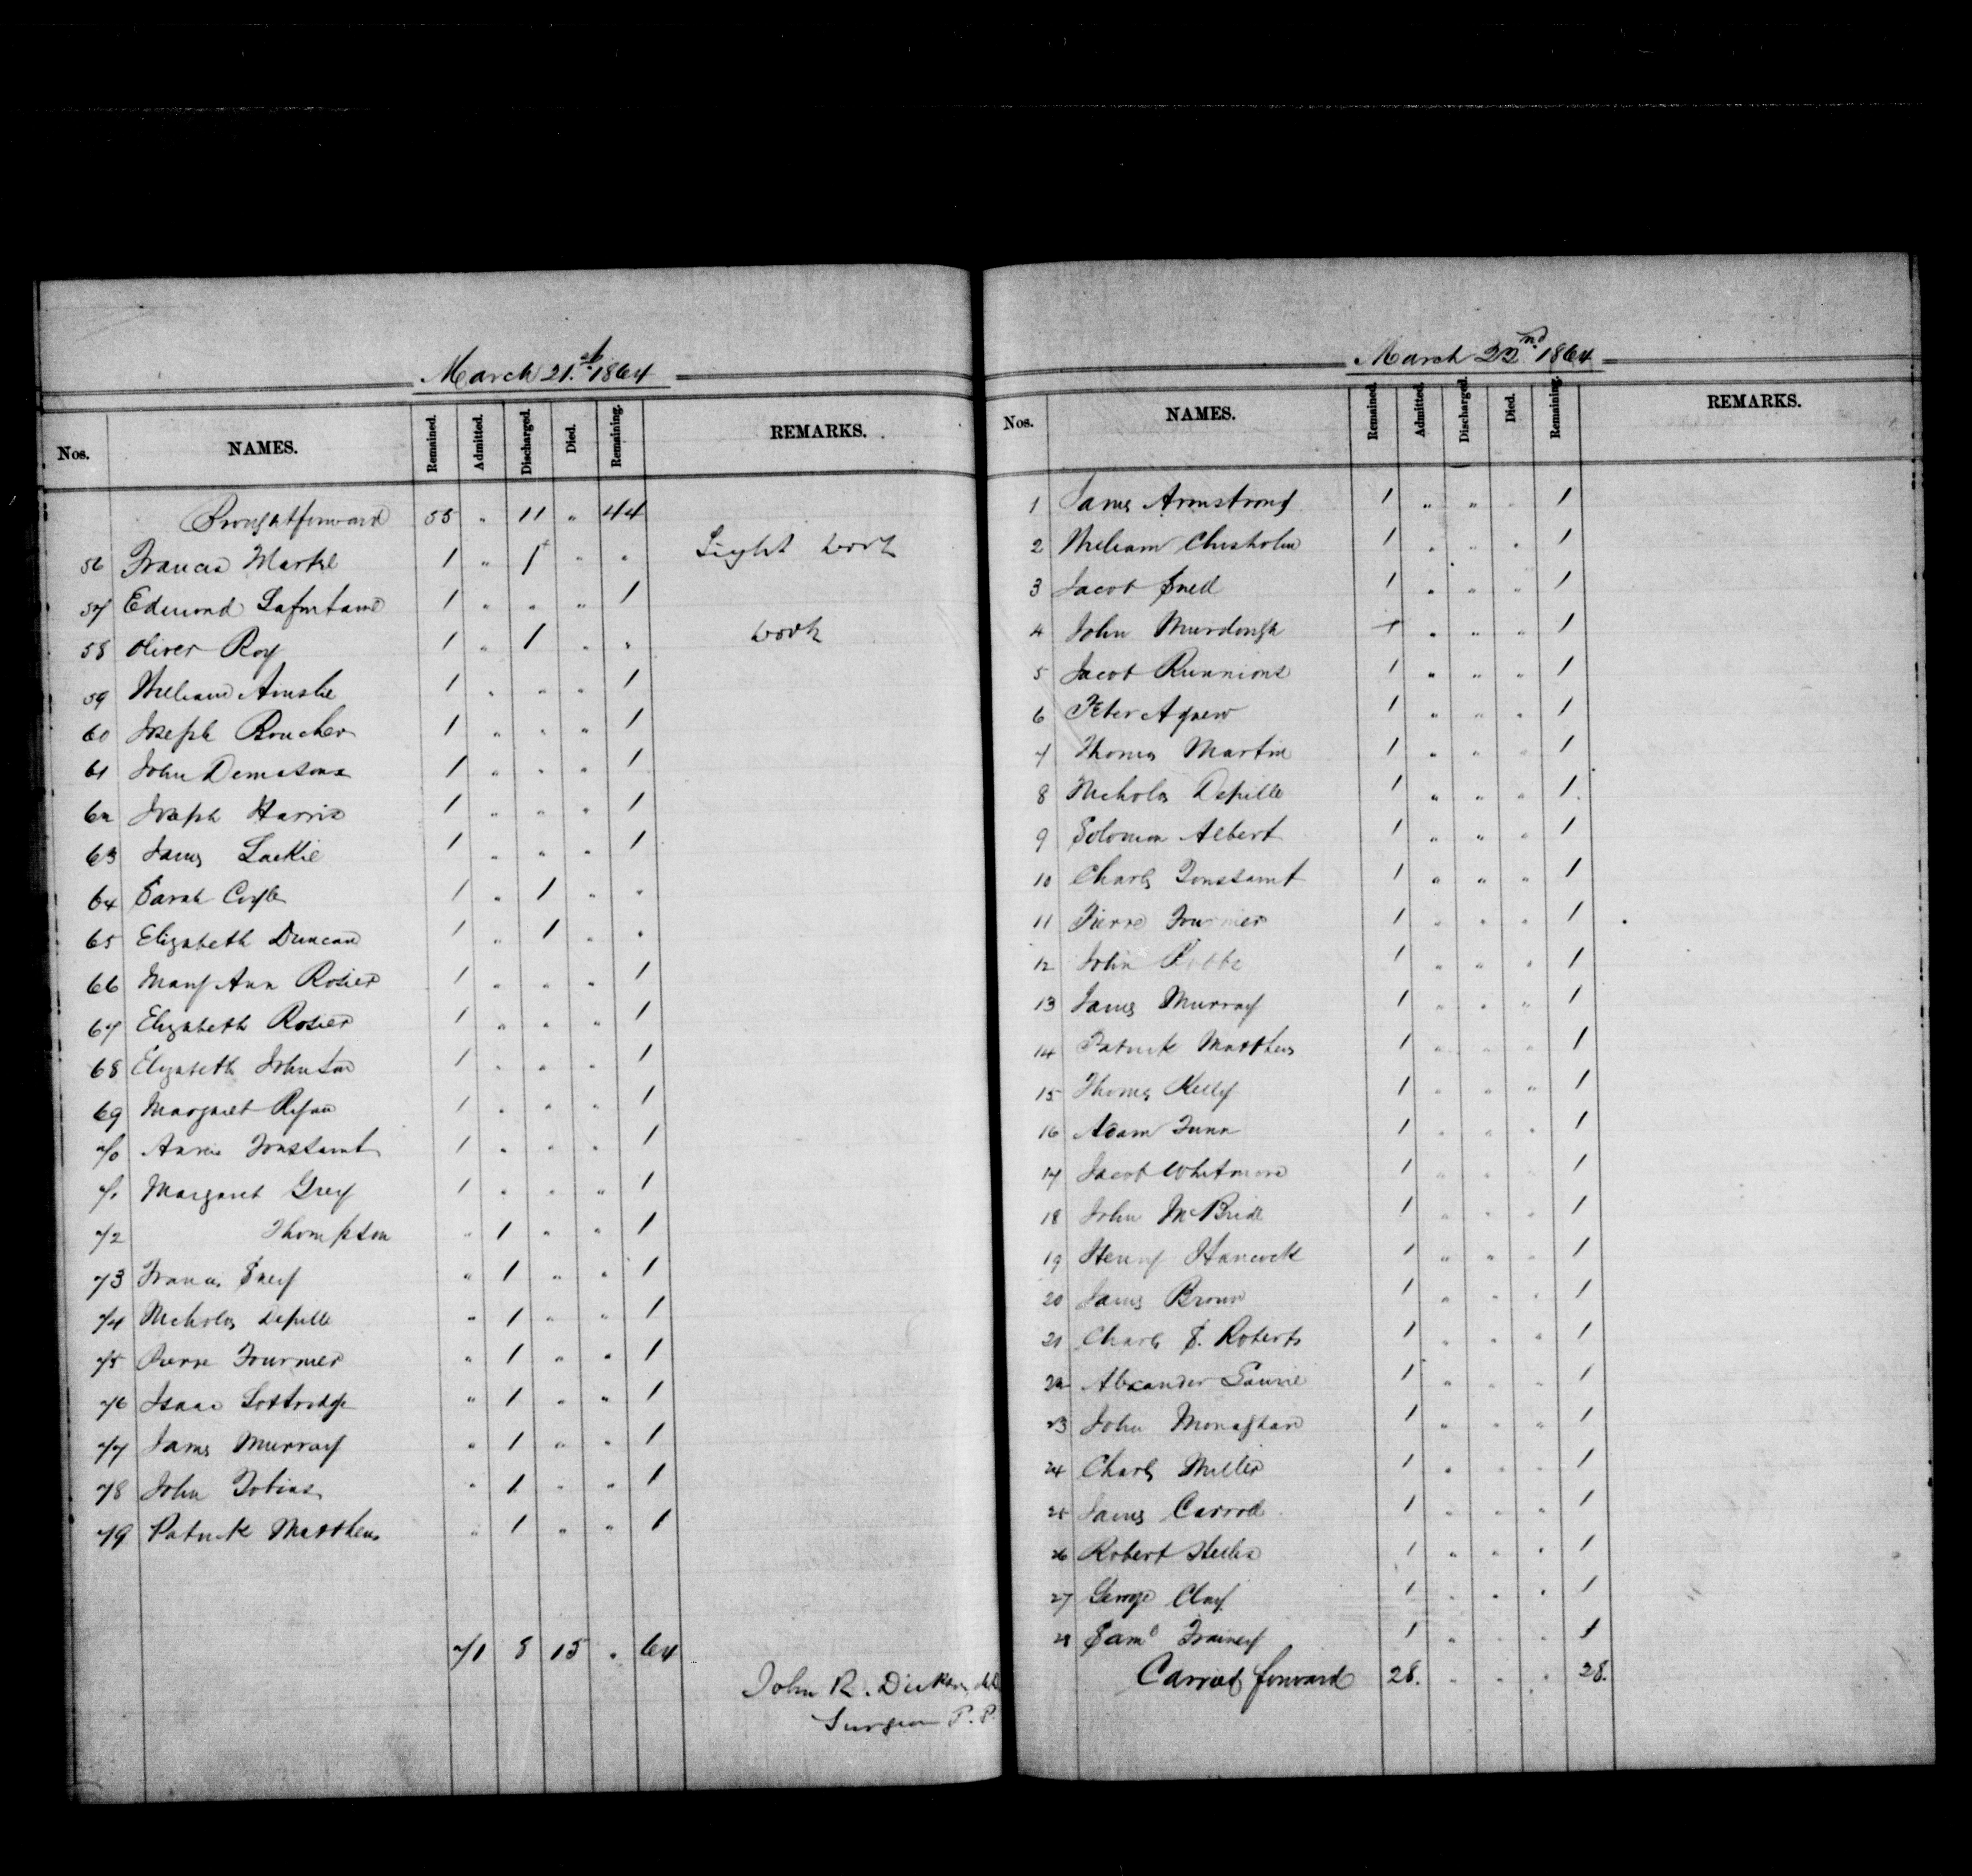 March 21.st 1864
Nos. NAMES. Remained. Admitted. Discharged. Died. Remaining. REMARKS.
Broughtforward 55 " 11 " 44
56 Francis Markel 1 " 1 " " Light work
57 Edmond Lafontaine 1 " " " 1
58 Oliver Roy 1 " 1 " " work
59 William Ainslie 1 " " " 1
60 Joseph Boucher 1 " " " 1
61 John Demasons 1 " " " 1
62 Joseph Harris 1 " " " 1
63 James Lackie 1 " " " 1
64 Sarah Coyle 1 " 1 " "
65 Elizabeth Duncan 1 " 1 " "
66 Mary Ann Rosier 1 " " " 1
67 Elizabeth Rosier 1 " " " 1
68 Elizabeth Johnston 1 " " " 1
69 Margaret Ryan 1 " " " 1
70 Toussaint 1 " " " 1
71 Margaret Grey 1 " " " 1
72 Thompson " 1 " " 1
73 Francis Sney " 1 " " 1
74 Nicholas Depille " 1 " " 1
75 Pierre Fournier " 1 " " 1
76 Isaac Lottridge " 1 " " 1
77 James Murray " 1 " " 1
78 John Tobias " 1 " " 1
79 Patrick Matthews " 1 " " 1
71 8 15 " 64
John R. Dickson M.D.
Surgeon P. P.
March 22nd 1864
Nos. NAMES. Remained. Admitted. Discharged. Died. Remaining. REMARKS.
1 James Armstrong 1 " " " 1
2 William Chisholm 1 " " " 1
3 Jacob Sned 1 " " " 1
4 John Murdough 1 " " " 1
5 Jacob Runnions 1 " " " 1
6 Peter Agnew 1 " " " 1
7 Thomas Martin 1 " " " 1
8 Nicholas Depille 1 " " " 1
9 Solomon Albert 1 " " " 1
10 Charles Toussaint 1 " " " 1
11 Pierre Fournier 1 " " " 1
12 John 1 " " " 1
13 James Murray 1 " " " 1
14 Patrick Matthews 1 " " " 1
15 Thomas Kelly 1 " " " 1
16 Adam Funn 1 " " " 1
17 Jacob Whitmore 1 " " " 1
18 John McBride 1 " " " 1
19 Henry Hancock 1 " " " 1
20 James Brown 1 " " " 1
21 Charles S. Roberts 1 " " " 1
22 Alexander Laurie 1 " " " 1
23 John Monaghan 1 " " " 1
24 Charles Miller 1 " " " 1
25 James Carroll 1 " " " 1
26 Robert 1 " " " 1
27 George Clay 1 " " " 1
28 Saml Trainey 1 " " " 1
Carried forward 28. " " " 28.